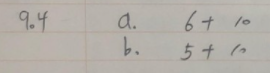 9.4 a. 6 + 10
b. 5 + 10